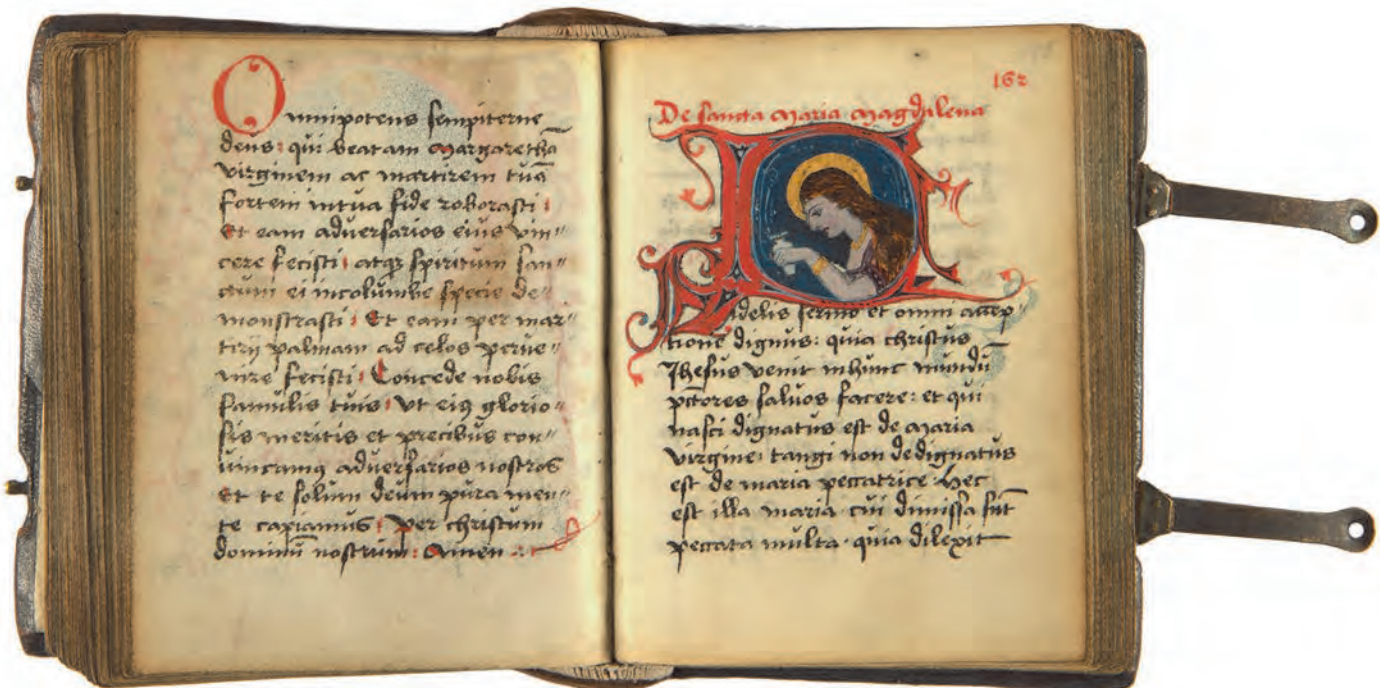 Omnipotens sempiterne
deus: qui beatam Margarethā
virginem ac martirem tuā
fortem in tua fide roborasti:
Et eam adversarios eius vin〃
cere fecisti: atqꝫ spiritum san〃
ctum ei in columbe specie de〃
monstrasti: Et eam per mar〃
tirij palmam ad celos perve〃
nire fecisti: Concede nobis
famulis tuis: Ut eiꝰ glorio〃
sis meritis et precibus con〃
vincamꝰ adversarios nostros
Et te solum deum pura men〃
te capiamus: Per christum
dominū nostrum: Amen
162
De sancta Maria Magdalena
Fidelis sermo et omni accep〃
tione dignus: quia christus
Jhesus venit in hunc mundū
pctōres salvos facere: et qui
nasci dignatus est de Maria
virgine: tangi non dedignatus
est de maria peccatrice. Hec
est illa maria cui dimissa sūt
peccata multa. quia dilexit